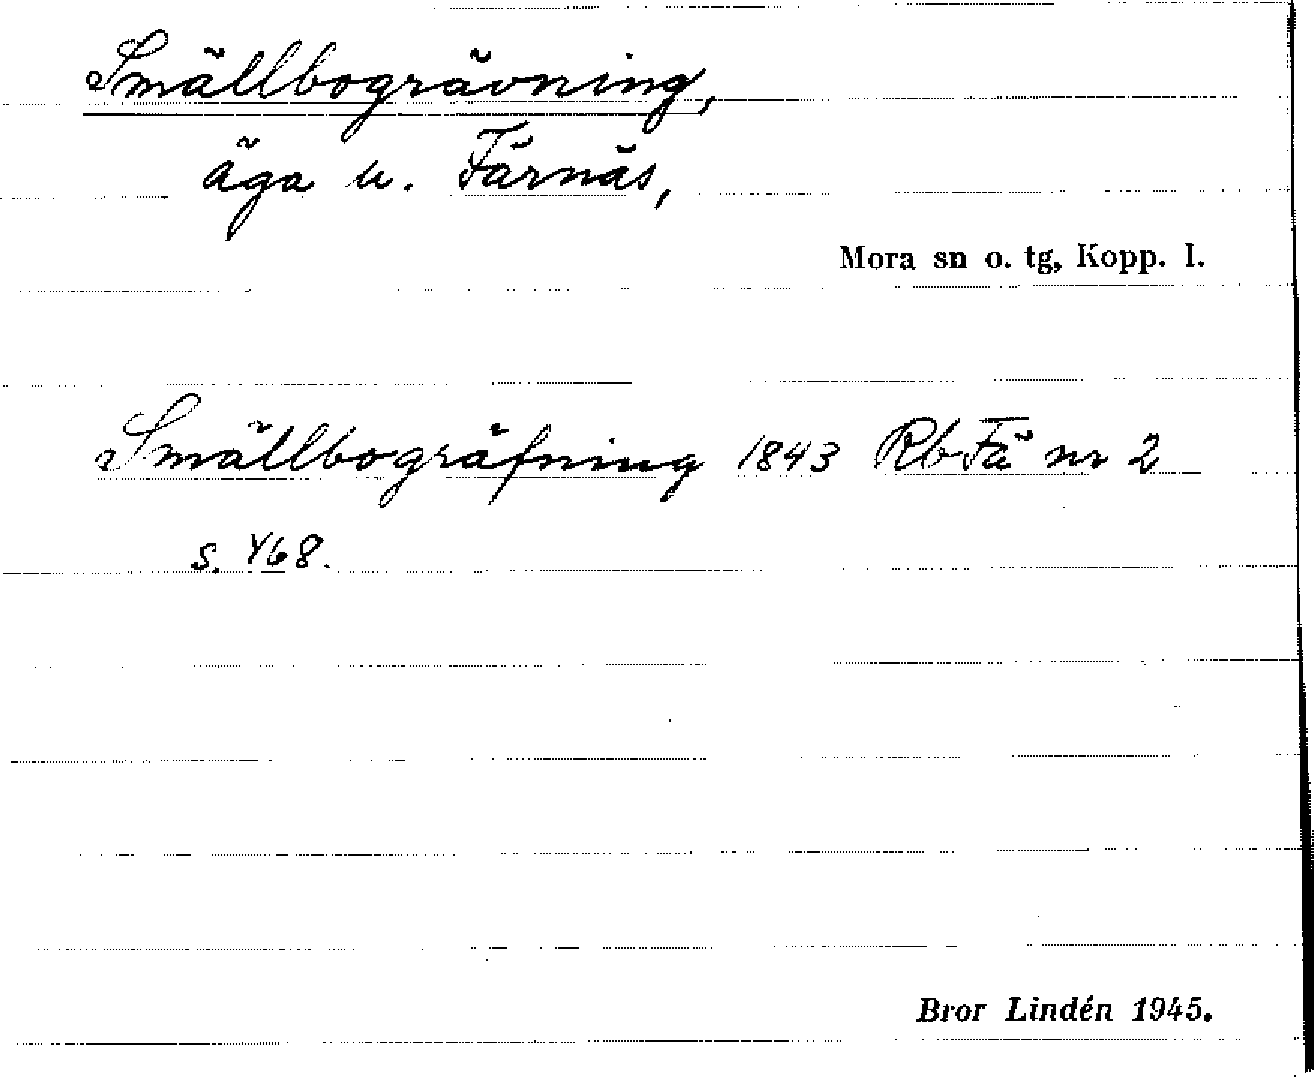 Smällbogrävning,
äga u. Färnäs,
Mora sn o. tg, Kopp. l.
Smällbogräfning 1843 Rb Fä nr 2
s. 468.
Bror Lindén 1945.